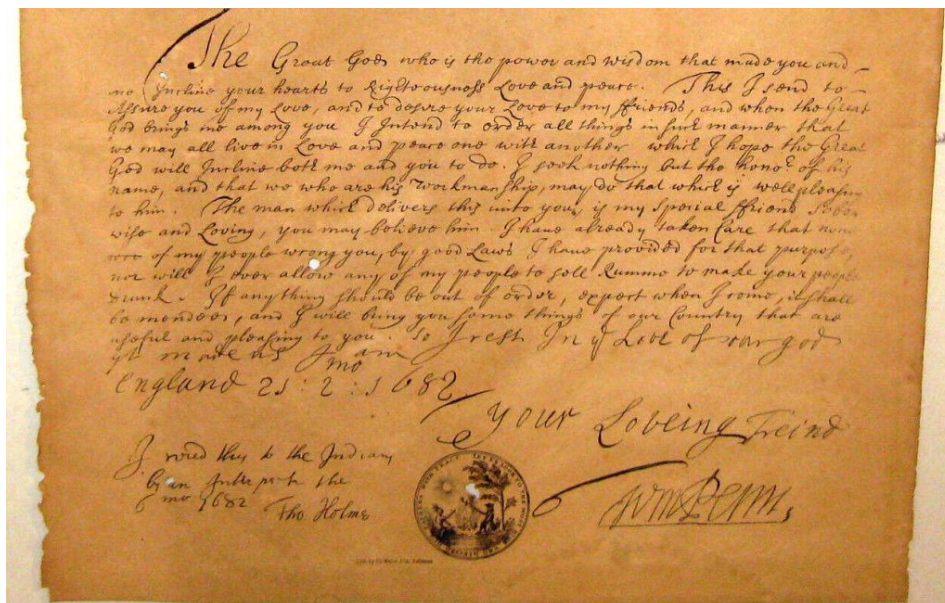 The Great God, who is the power and wisdom that made you and
me Incline your hearts to Righteousness Love and peace. This I send to
Assure you of my Love, and to desire your Love to my ffriends, and when the Great
God brings me among you I Intend to order all things in such manner that
we may all live in Love and peace one with another which I hope the Great
God will Incline both me and you to do. I seek nothing but the honor of his
name, and that we who are his workmanship, may do that which is well pleasing
to him. The man which delivers this unto you, is my Special ffriend Sober
wise and Loving, you may believe him. I have already taken Care that none
of my people wrong you, by good Laws I have provided for that purpose,
nor will I ever allow any of my people to sell Rumme to make your people
Drunk. If any thing should be out of order, expect when I come, it shall
be mended, and I will bring you some things of our Country that are
useful and pleasing to you. So I rest In ye Love of our god
yt made us I am
England 21: 2: mo 1682
your Loveing Freind
I read this to the Indians
by an Interpreter the
6 mo 1682 Tho Holme
Wm Penn